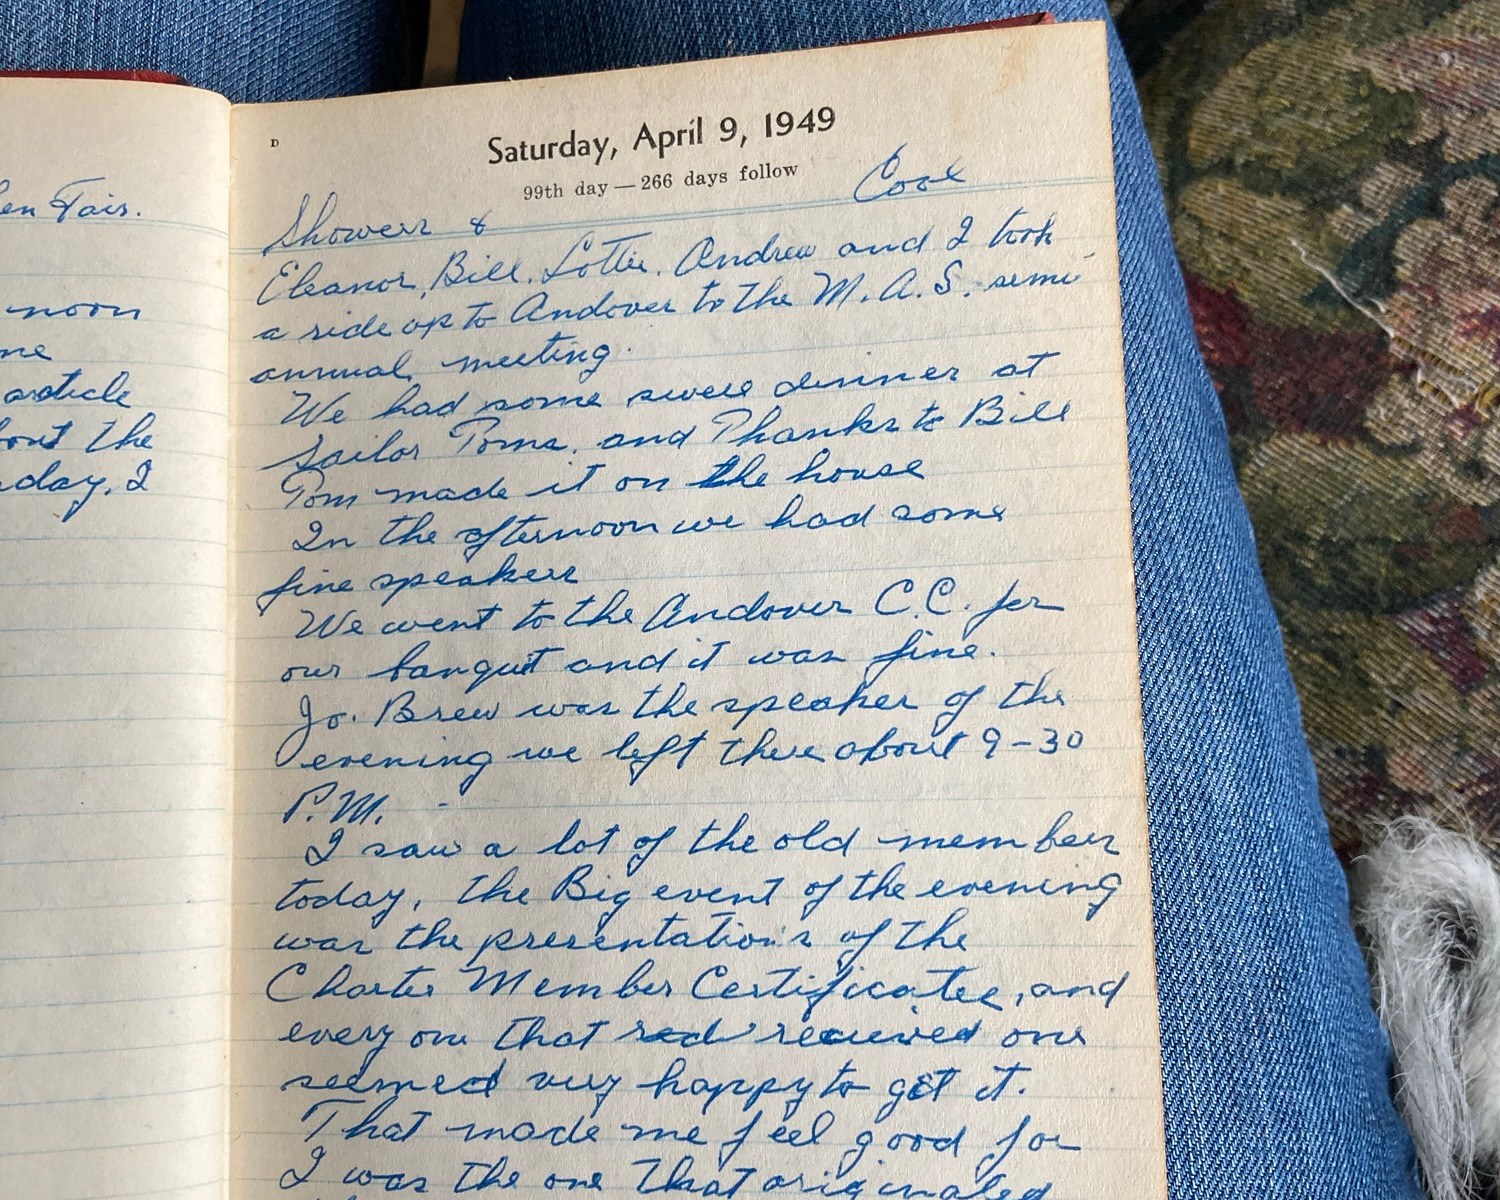 en Fair.
noon
ne
article
bout the
day, I
D
Saturday, April 9, 1949
99th day — 266 days follow
Showers & Cool
Eleanor, Bill, Lottie, Andrew and I took
a ride up to Andover to the M. A. S. semi
annual meeting.
We had some swell dinner at
Sailor Toms, and Thanks to Bill
Tom made it on the house
In the afternoon we had some
fine speakers
We went to the Andover C.C. for
our banquet and it was fine.
Jo. Brew was the speaker of the
evening we left there about 9-30
P.M. -
I saw a lot of the old members
today, the Big event of the evening
was the presentations of the
Charter Member Certificates, and
every one that received one
seemed very happy to get it.
That made me feel good for
I was the one that originated